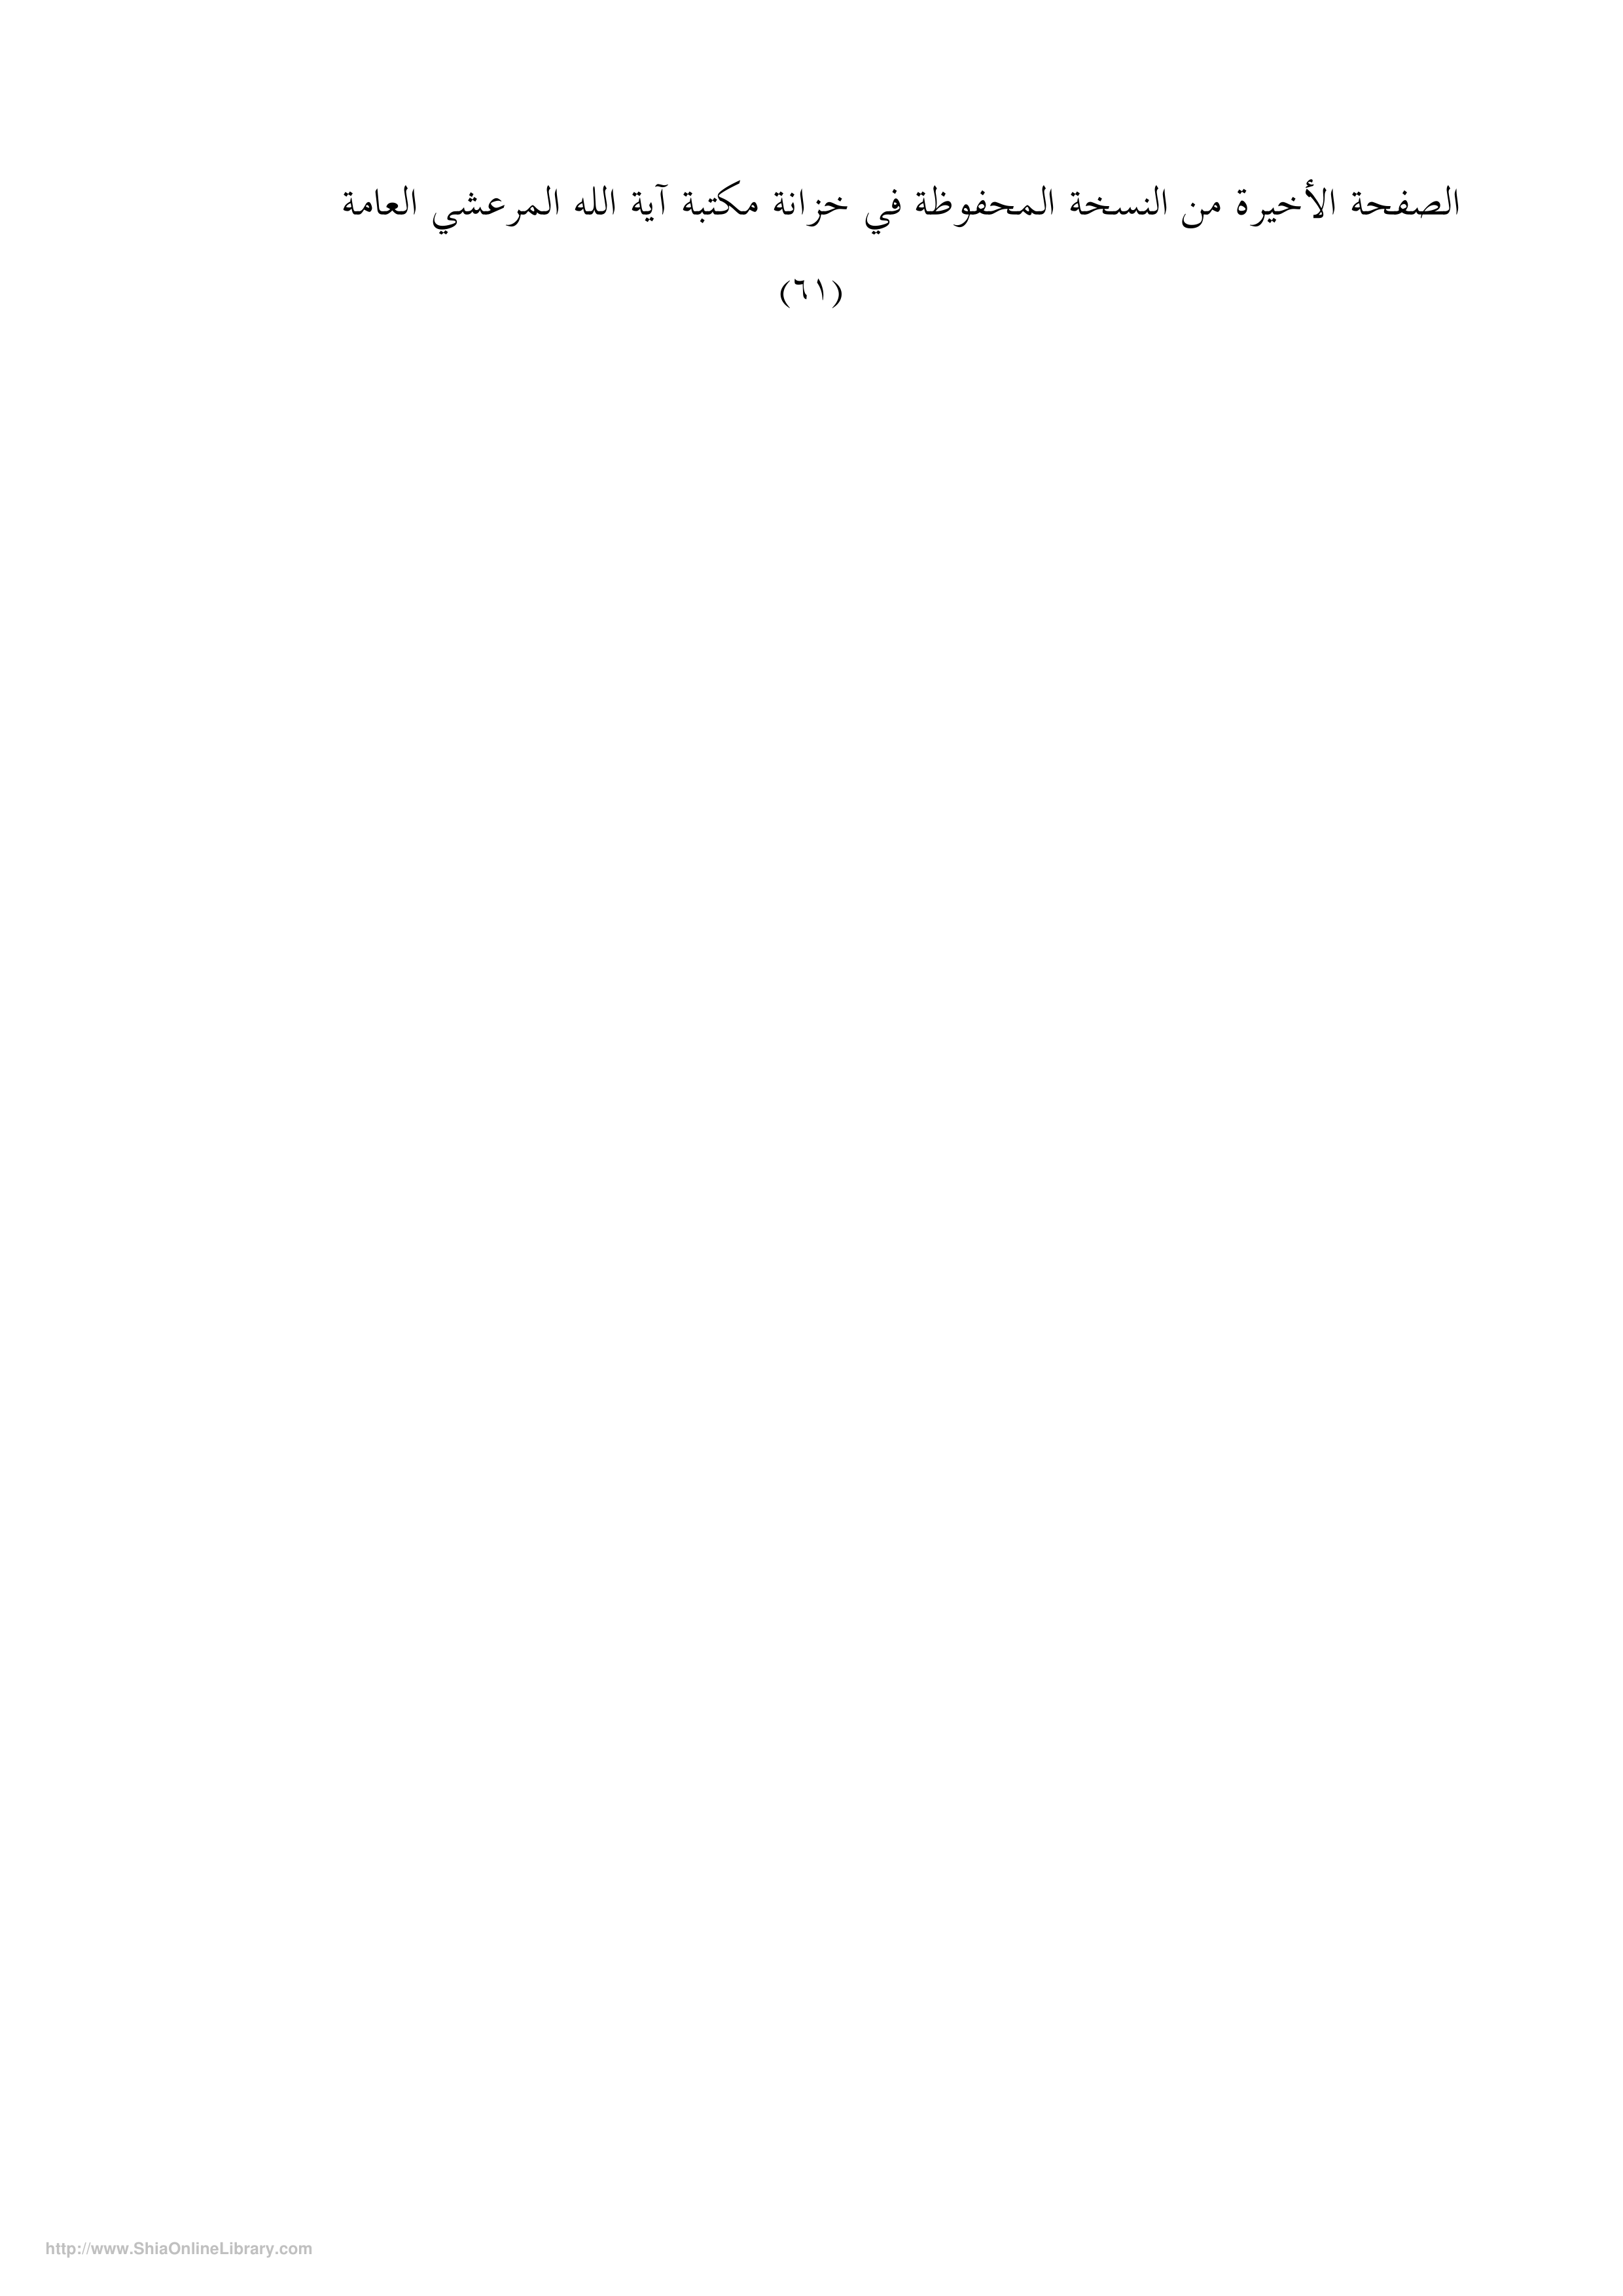 الصفحة الأخيرة من النسخة المحفوظة في خزانة مكتبة آية الله المرعشي العامة
(٦١)
http://www.ShiaOnlineLibrary.com